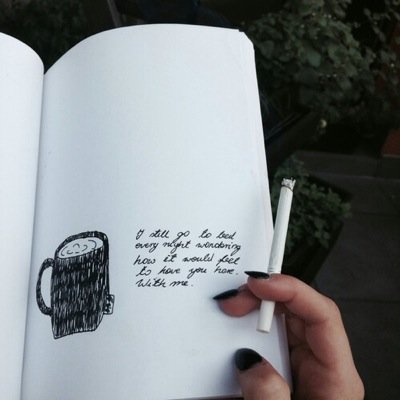 I still go to bed
every night wondering
how it would feel
to have you here.
With me.